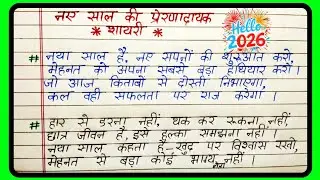 नए साल की प्रेरणादायक
* शायरी *
Hello
2026
# नया साल है, नए सपनों की शुरुआत करो,
मेहनत को अपना सबसे बड़ा हथियार करो।
जो आज किताबों से दोस्ती निभाएगा,
कल वही सफलता पर राज करेगा।
# हार से डरना नहीं, थक कर रुकना नहीं
छात्र जीवन है, इसे हल्का समझना नहीं।
नया साल कहता है—खुद पर विश्वास रखो,
मेहनत से बड़ा कोई भाग्य नहीं।